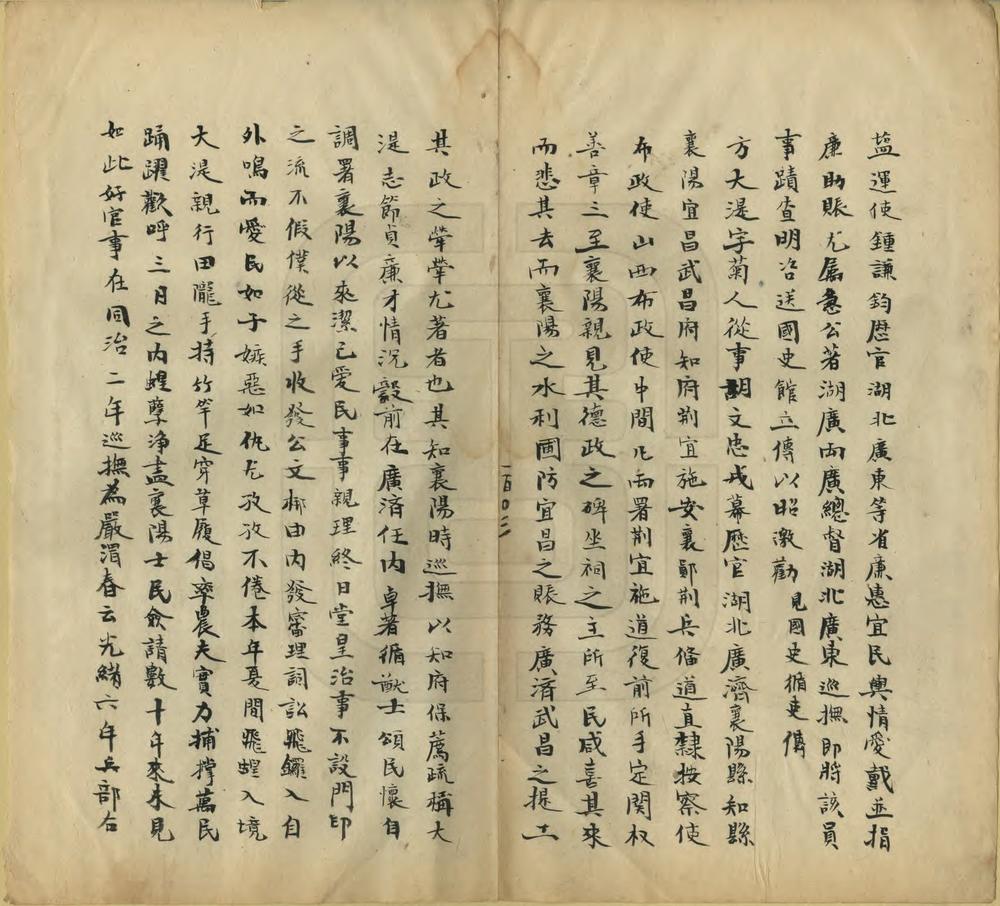 盐運使鍾謙鈞歷官湖北廣東等省廉惠宜民輿情愛戴並指
廉助賑尤属急公著湖廣兩廣總督湖北廣東巡撫即將該員
事蹟查明咨送國史館立傳以昭激勸見國史循吏傳
方大湜字菊人從事胡文忠戎幕歷官湖北廣濟襄陽縣知縣
襄陽宜昌武昌府知府荆宜施安襄鄖荆兵俻道直隸按察使
布政使山西布政使中間凡兩署荆宜施道復前所手定関权
善章三至襄陽親見其德政之碑坐祠之主所至民咸喜其來
而悲其去而襄陽之水利圃防宜昌之賑務廣済武昌之提工
一百〇二
其政之犖犖尤著者也其知襄陽時巡撫以知府保薦疏稱大
湜志節貞廉才情沉毅前在廣済任内卓著循猷士頌民懷自
調署襄陽以來潔己愛民事事親理終日堂皇治事不設門印
之流不假僕從之手收發公文梆由内發審理詞訟飛鑼入自
外鳴而愛民如子嫉惡如仇尤孜孜不倦本年夏間飛蝗入境
大湜親行田隴手持竹竿足穿草履倡率農夫實力捕撑萬民
踴躍歡呼三日之内蝗孽净盡襄陽士民僉請數十年來未見
如此好官事在同治二年巡撫為嚴渭春云光緒六年兵部右